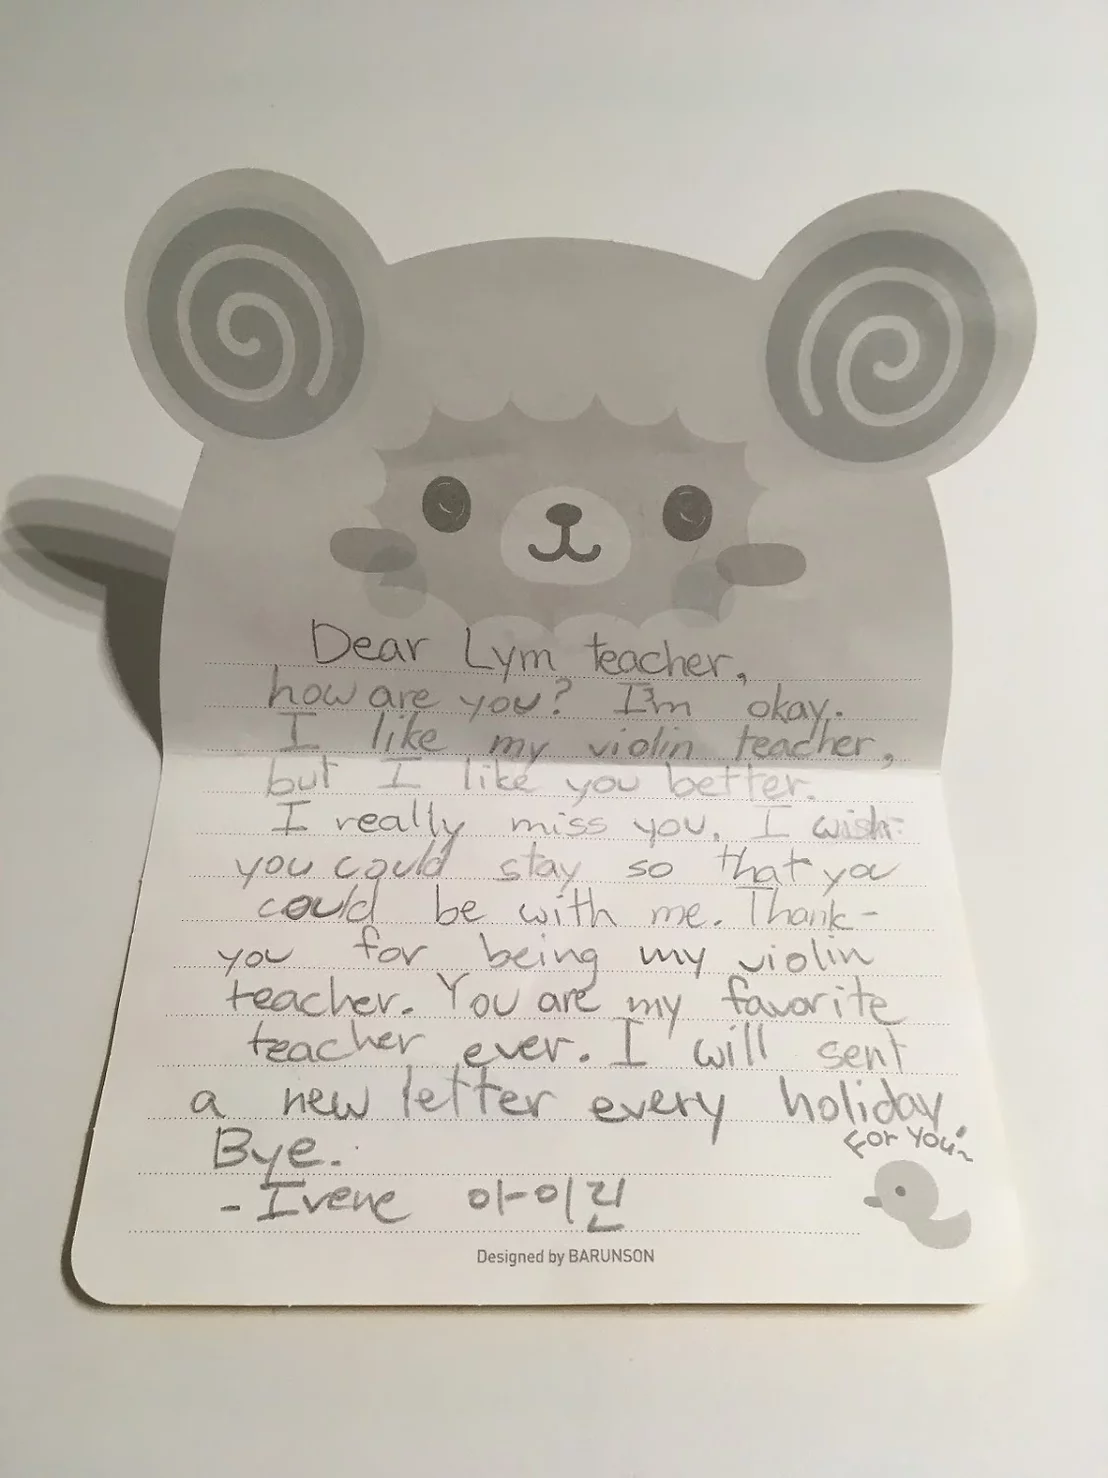 Dear Lym teacher,
how are you? I'm okay.
I like my violin teacher,
but I like you better.
I really miss you. I wish
you could stay so that you
could be with me. Thank-
you for being my violin
teacher. You are my favorite
teacher ever. I will sent
a new letter every holiday.
Bye.
- Irene 아이린
For you~
Designed by BARUNSON